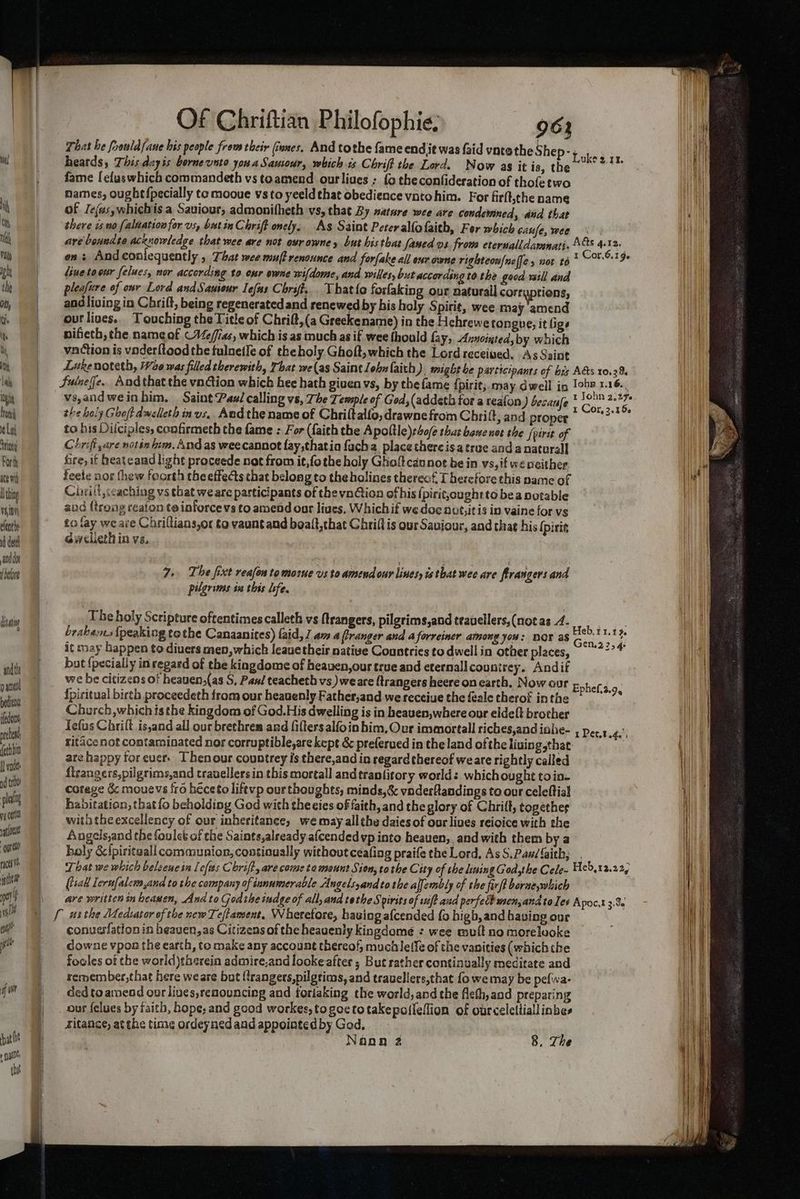 Of Chriſtian Philoſophie. 963
That he ſhould ſaue his people from their ſinnes. And to the ſame end it was ſaid vnto the Shep-
heards, This day is borne vnto you a Sauiour, which is Chriſt the Lord. Now as it is, the Luke 2. 11.
ſame Ieſus which commandeth vs to amend our liues ; ſo the conſideration of thoſe two
names, ought ſpecially to mooue vs to yeeld that obedience vnto him. For firſt, the name
of Ieſus, which is a Sauiour, admoniſheth vs, that By nature wee are condemned, and that
there is no ſaluation for vs, but in Chriſt onely. As Saint Peter alſo ſaith, For which cauſe, wee
are bound to acknowledge that wee are not our owne, but his that ſaued vs from eternall damnati- Acts 4.12.
on : And conſequently, That wee muſt renounce and forſake all our owne righteouſneſſe, not to 1 Cor.6.19.
liue to our ſelues, nor according to our owne wiſdome, and willes, but according to the good will and
pleaſure of our Lord and Sauiour Ieſus Chriſt. That ſo forſaking our naturall corruptions,
and liuing in Chriſt, being regenerated and renewed by his holy Spirit, wee may amend
our liues. Touching the Title of Chriſt, (a Greeke name) in the Hebrewe tongue, it ſig-
nifieth, the name of Meſſias, which is as much as if wee ſhould ſay, Annointed, by which
vnction is vnderſtood the fulneſſe of the holy Ghoſt, which the Lord receiued. As Saint
Luke noteth, Who was filled therewith, That we (as Saint Iohn ſaith) might be participants of his Acts 10.38.
fulneſſe. And that the vnction which hee hath giuen vs, by the ſame ſpirit, may dwell in Iohn 1.16.
vs, and we in him. Saint Paul calling vs, The Temple of God, (addeth for a reaſon) becauſe 1 Iohn 2.27.
the holy Ghoſt dwelleth in vs. And the name of Chriſt alſo, drawne from Chriſt, and proper 1 Cor. 3.16.
to his Diſciples, confirmeth the ſame : For (ſaith the Apoſtle) thoſe that haue not the ſpirit of
Chriſt, are not in him. And as wee cannot ſay, that in ſuch a place there is a true and a naturall
fire, if heate and light proceede not from it, ſo the holy Ghoſt cannot be in vs, if we neither
feele nor ſhew foorth the effects that belong to the holines thereof. Therefore this name of
Chriſt, teaching vs that we are participants of the vnction of his ſpirit, ought to be a notable
and ſtrong reaſon to inforce vs to amend our liues. Which if we doe not, it is in vaine for vs
to ſay we are Chriſtians, or to vaunt and boaſt, that Chriſt is our Sauiour, and that his ſpirit
dwelleth in vs.
7. The fixt reaſon to moue vs to amend our liues, is that wee are ſtrangers and
pilgrims in this life.
The holy Scripture oftentimes calleth vs ſtrangers, pilgrims, and trauellers, (not as A-
brahams ſpeaking to the Canaanites) ſaid, I am a ſtranger and a forreiner among you : nor as Heb.11.13.
it may happen to diuers men, which leaue their natiue Countries to dwell in other places, Gen.23.4.
but ſpecially in regard of the kingdome of heauen, our true and eternall countrey. And if
we be citizens of heauen, (as S. Paul teacheth vs) we are ſtrangers heere on earth. Now our Epheſ.2.9.
ſpiritual birth proceedeth from our heauenly Father, and we receiue the ſeale therof in the
Church, which is the kingdom of God. His dwelling is in heauen, where our eldeſt brother
Ieſus Chriſt is, and all our brethren and ſiſters alſo in him. Our immortall riches, and inhe- 1 Pet.1.4.
ritāce not contaminated nor corruptible, are kept & preſerued in the land of the liuing, that
are happy for euer. Then our countrey is there, and in regard thereof we are rightly called
ſtrangers, pilgrims, and trauellers in this mortall and tranſitory world : which ought to in-
corage & moue vs frō hēce to lift vp our thoughts, minds, & vnderſtandings to our celeſtial
habitation, that ſo beholding God with the eies of faith, and the glory of Chriſt, together
with the excellency of our inheritance, we may all the daies of our liues reioice with the
Angels, and the ſoules of the Saints, already aſcended vp into heauen, and with them by a
holy & ſpirituall communion, continually without ceaſing praiſe the Lord. As S. Paul ſaith,
That we which beleeue in Ieſus Chriſt, are come to mount Sion, to the City of the liuing God, the Cele- Heb.12.22,
ſtiall Ieruſalem, and to the company of innumerable Angels, and to the aſſembly of the firſt borne, which
are written in heauen, And to God the iudge of all, and to the Spirits of iuſt and perfect men, and to Ieſ Apoc.13.8.
us the Mediator of the new Teſtament. Wherefore, hauing aſcended ſo high, and hauing our
conuerſation in heauen, as Citizens of the heauenly kingdome : wee muſt no more looke
downe vpon the earth, to make any account thereof, much leſſe of the vanities (which the
fooles of the world) therein admire, and looke after ; But rather continually meditate and
remember, that here we are but ſtrangers, pilgrims, and trauellers, that ſo we may be peſwa-
ded to amend our liues, renouncing and forſaking the world, and the fleſh, and preparing
our ſelues by faith, hope, and good workes, to goe to take poſſeſſion of our celeſtiall inhe-
ritance, at the time ordeyned and appointed by God.
Nnnn 2 8. The